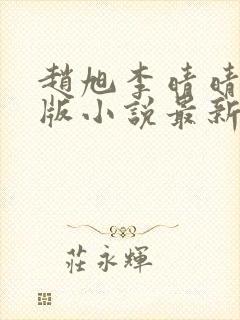 趙旭李晴晴
版小說最新
莊永輝